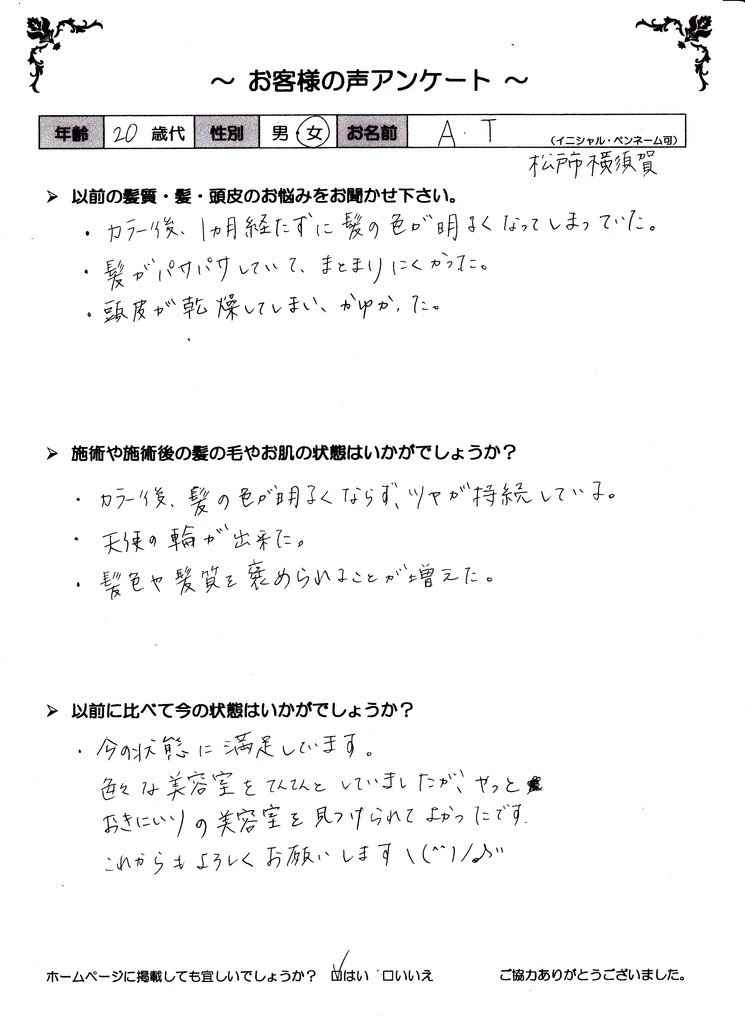 ～ お客様の声アンケート ～
年齢 20 歳代 性別 男・女 お名前 A.T (イニシャル・ペンネーム可)
松戸市横須賀
➢ 以前の髪質・髪・頭皮のお悩みをお聞かせ下さい。
・カラー後、1ヵ月経たずに髪の色が明るくなってしまっていた。
・髪がパサパサしていて、まとまりにくかった。
・頭皮が乾燥してしまい、かゆかった。
➢ 施術や施術後の髪の毛やお肌の状態はいかがでしょうか？
・カラー後、髪の色が明るくならず、ツヤが持続している。
・天使の輪が出来た。
・髪色や髪質を褒められることが増えた。
➢ 以前に比べて今の状態はいかがでしょうか？
・今の状態に満足しています。
色々な美容室をてんてんとしていましたが、やっと
おきにいりの美容室を見つけられてよかったです。
これからもよろしくお願いします \(^^)/♪
ホームページに掲載しても宜しいでしょうか？ ☑はい □いいえ ご協力ありがとうございました。